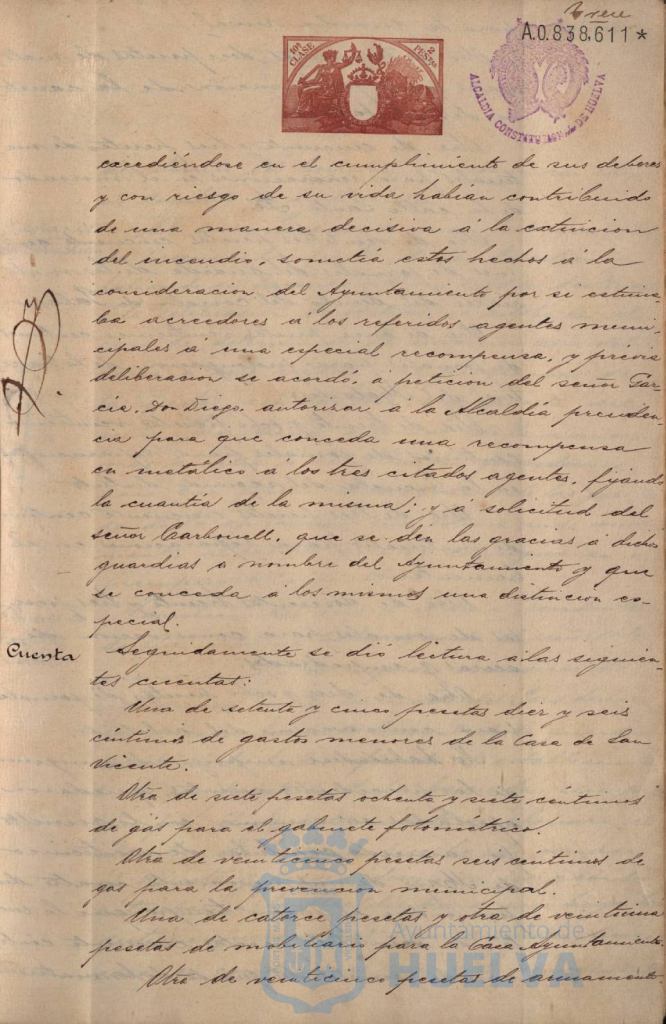 Trece
A.0.838,611*
10ª CLASE
2 PESTAS
ALCALDIA CONSTITUCIONAL DE HUELVA
excediéndose en el cumplimiento de sus deberes
y con riesgo de su vida habían contribuido
de una manera decisiva á la extincion
del incendio, sometía estos hechos á la
consideracion del Ayuntamiento por si estima
ba acreedores á los referidos agentes muni
cipales á una especial recompensa, y prévia
deliberacion se acordó, á peticion del señor Gar-
cía, Don Diego, autorizar á la Alcaldía presiden-
cia para que conceda una recompensa
en metálico á los tres citados agentes, fijando
la cuantía de la misma; y á solicitud del
señor Carbonell, que se den las gracias á dichos
guardias á nombre del Ayuntamiento y que
se conceda á los mismos una distincion es-
pecial.
Cuenta
Seguidamente se dió lectura á las siguien-
tes cuentas:
Una de setenta y cinco pesetas diez y seis
céntimos de gastos menores de la Casa de San
Vicente.
Otra de siete pesetas ochenta y siete céntimos
de gás para el gabinete fotométrico.
Otra de veinticinco pesetas seis céntimos de
gas para la prevencion municipal.
Una de catorce pesetas y otra de veintiuna
pesetas de mobiliario para la Casa Ayuntamiento.
Otra de veinticinco pesetas de armamento
Ayuntamiento de
HUELVA